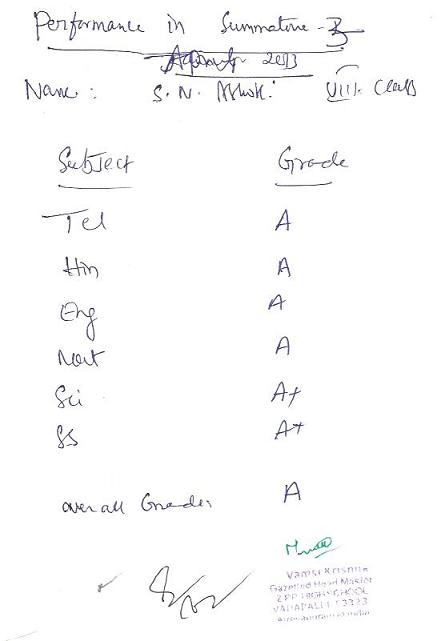 Performance in Summative - 3
2013
Name : S. N. Ashok. VIII. Class
Subject Grade
Tel A
Hin A
Eng A
Mat A
Sci A+
SS A+
overall Grade: A
Vamsi Krishna
Gazetted Head Master
Z P P HIGH SCHOOL